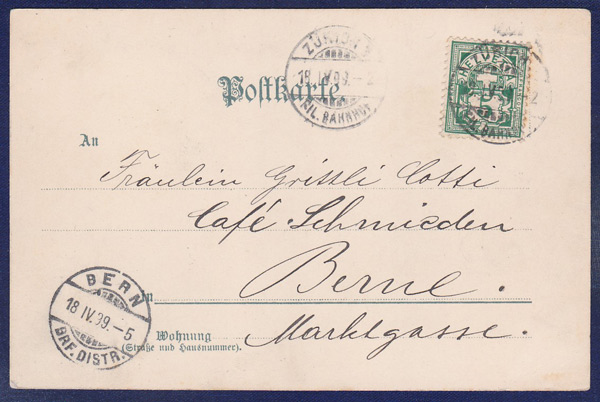 ZÜRICH
18 IV 99.-2
FIL. BAHNHOF
HELVETIA
5
Postkarte
An
Fräulein Grittli Cotti
Café Schmieden
In Berne.
Wohnung
(Straße und Hausnummer).
Marktgasse.
BERN
18 IV.99.-5
BRF. DISTR.